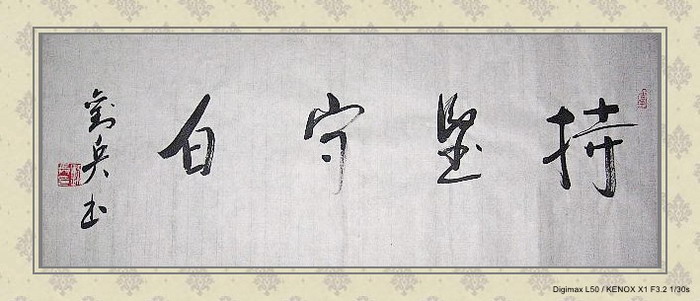 持堅守白
劉兵
Digimax L50 / KENOX X1 F3.2 1/30s